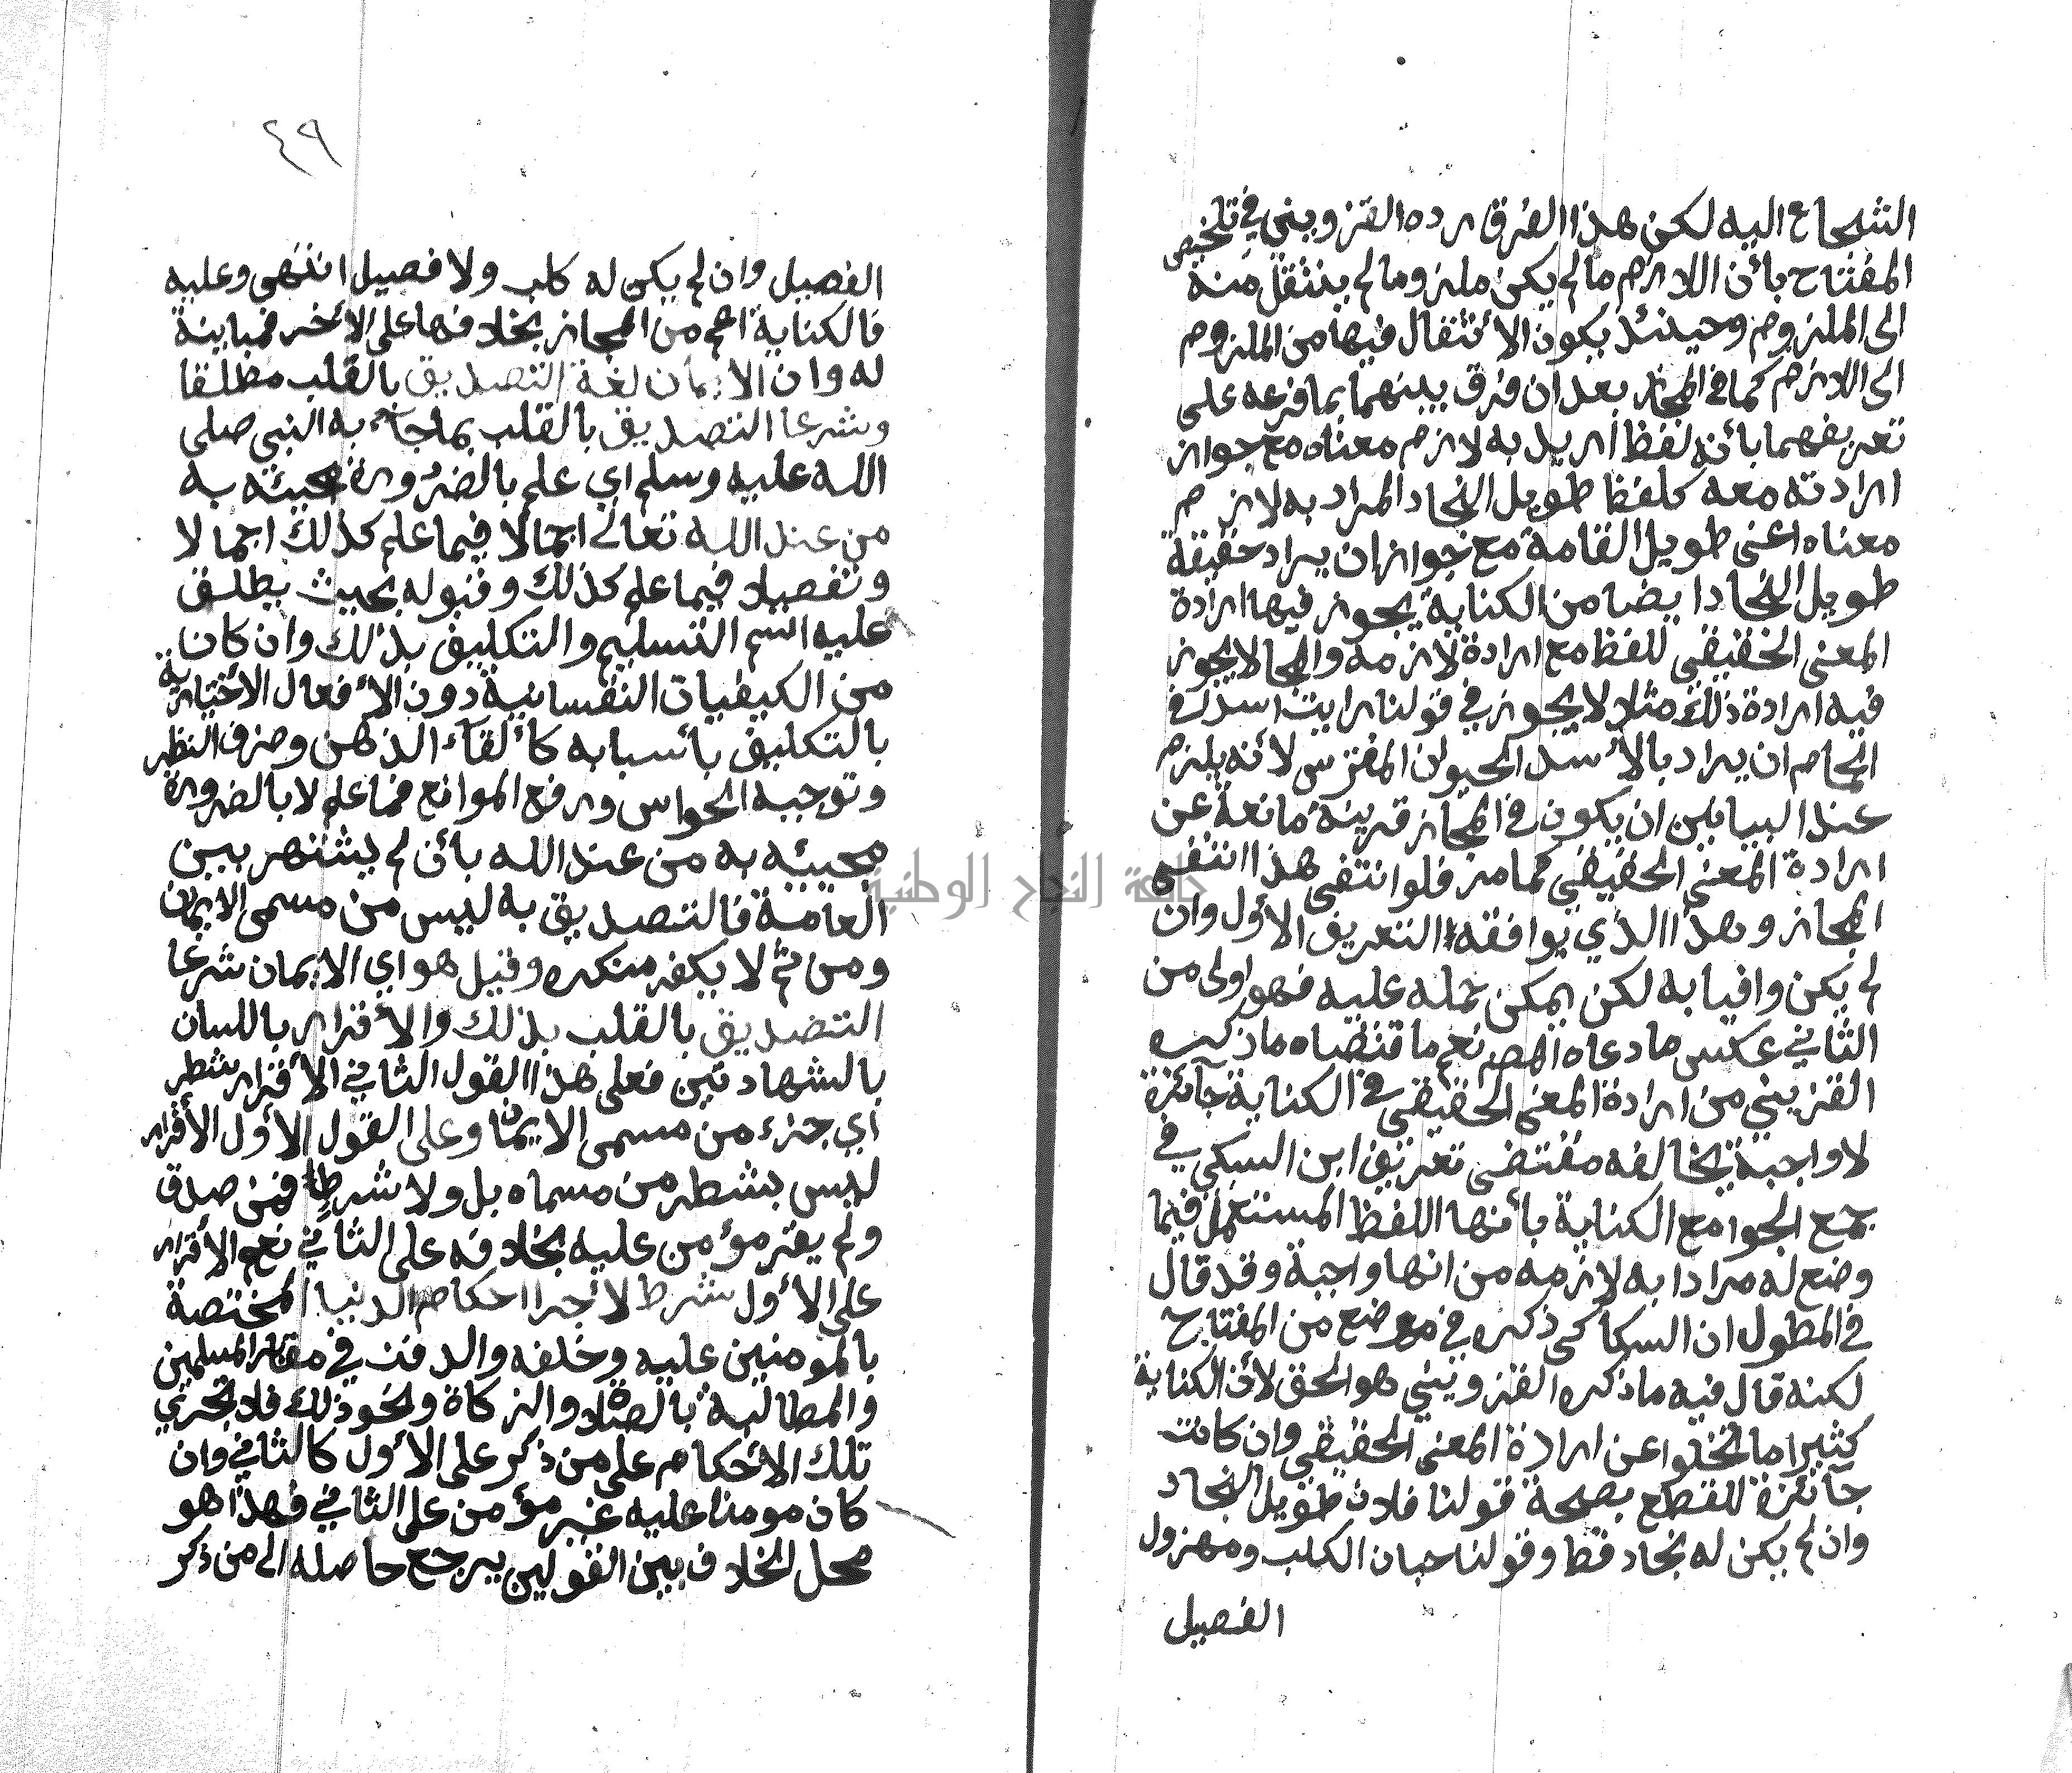 الشجاع اليه لكن هذا الفرق رده القزويني في تلخيص
المفتاح بأن اللازم مالم يكن ملزوما لم ينتقل منه
الى الملزوم وحينئذ يكون الأنتقال فيها من الملزوم
الى اللازم كما في المجاز بعد ان فرق بينهما بما فرعه على
تعريفهما بأنه لفظ اريد به لازم معناه مع جواز
ارادته معه كلفظ طويل النجاد المراد به لازم
معناه اعنى طويل القامة مع جواز ان يراد حقيقة
طويل النجاد ايضا من الكناية يجوز فيها ارادة
المعنى الحقيقي للفظ مع ارادة لازمه والمجاز لا يجوز
فيه ارادة ذلك مثلا لا يجوز في قولنا رايت اسد في
الحمام ان يراد بالأسد الحيوان المفترس لأنه يلزم
عند البيانين ان يكون في المجاز قرينة مانعة عن
ارادة المعنى الحقيقي كما مر فلو انتفى هذا انتفى
المجاز وهذا الذي يوافقه التعريف الأول وان
لم يكن وافيا به لكن يمكن حمله عليه فهو اولى من
الثاني عكس ما دعاه المصر نعم ما اقتضاه ما ذكره
القزيني من ارادة المعنى الحقيقي في الكناية جآئزة
لا واجبة يخالفه مقتضى تعريف ابن السبكي في
جمع الجوامع الكناية بأنها اللفظ المستعمل فيما
وضع له مرادا به لازمه من انها واجبة وقد قال
في المطول ان السكاكى ذكره في موضع من المفتاح
لكنه قال فيه ما ذكره القزويني هو الحق لأن الكناية
كثيرا ما تخلوا عن ارادة المعنى الحقيقي وان كانت
جآئزة للقطع بصحة قولنا فلان طويل النجاد
وان لم يكن له نجاد قط وقولنا جبان الكلب ومهزول
الفصيل
٤٩
الفصيل وان لم يكن له كلب ولا فصيل انتهى وعليه
فالكناية اعم من المجاز بخلافها على الأخر فمباينة
له وان الايمان لغة التصديق بالقلب مطلقا
وشرعا التصديق بالقلب بما جآء به النبي صلى
الله عليه وسلم اي علم بالضرورة مجيئه به
من عند الله تعالى اجمالا فيما علم كذلك اجمالا
وتفصيلا فيما علم كذلك وقبوله بحيث يطلق
عليه اسم التسليم والتكليف بذلك وان كان
من الكيفيات النفسانية دون الأفعال الأختيارية
بالتكليف بأسبابه كألقآء الذهن وصرف النظر
وتوجيه الحواس ورفع الموانع فما علم لا بالضرورة
مجيئه به من عند الله بأن لم يشتهر بين
العامة فالتصديق به ليس من مسمى الايمان
ومن ثم لا يكفر منكره وقيل هو اي الايمان شرعا
التصديق بالقلب بذلك والأقرار باللسان
بالشهادتين فعلى هذا القول الثاني الأقرار شطر
اي جزء من مسمى الايمان وعلى القول الأول الأقرار
ليس بشطر من مسماه بل ولا شرط فمن صدق
ولم يقر مؤمن عليه بخلافه على الثاني نعم الأقرار
على الأول شرط لأجرا احكام الدنيا المختصة
بالمومنين عليه وخلفه والدفن في مقابر المسلمين
والمطالبة بالصلاة والزكاة ونحو ذلك فلا تجري
تلك الأحكام على من ذكر على الأول كالثاني وان
كان مومنا عليه غير مؤمن على الثاني فهذا هو
محل الخلاف بين القولين يرجع حاصله الى من ذكر
جامعة النجاح الوطنية